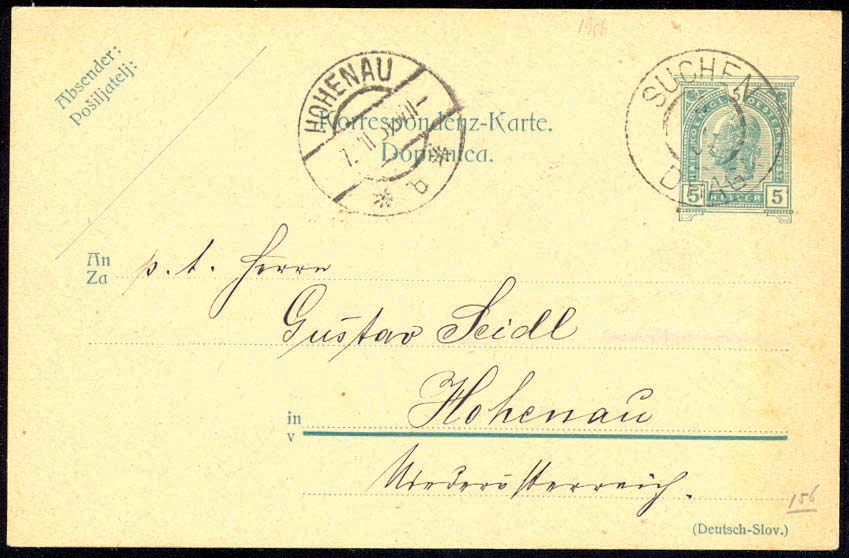 1906
Absender:
Pošiljatelj:
HOHENAU
7. 11
* b *
SUCHEN
Korrespondenz-Karte.
Dopisnica.
5 HELLER 5
An p. t. Herrn
Za
Gustav Seidl
in Hohenau
v
Niederösterreich.
156
(Deutsch-Slov.)